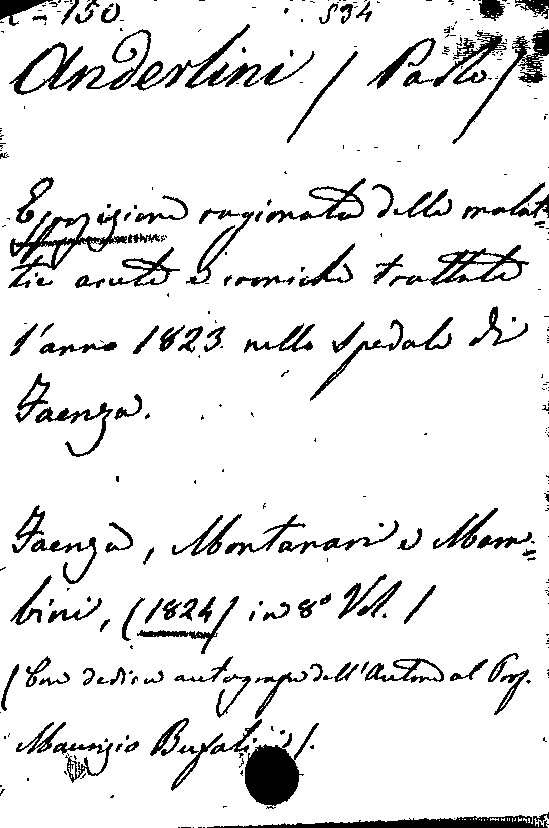 150 534
Anderlini (Paolo)
Esposizione ragionata delle malat=
tie acute e croniche trattate
l'anno 1823 nello Spedale di
Faenza.
Faenza, Montanari e Mara=
bini, (1824) in 8° Vol. 1
(Con dedica autografa dell'Autore al Prof.
Maurizio Bufalini).